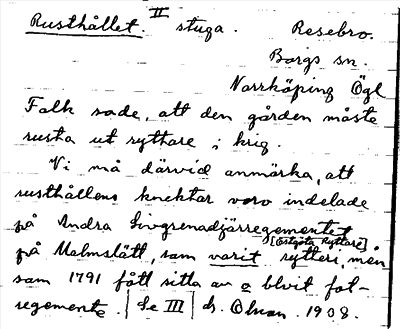 Rusthållet. II stuga. Resebro.
Borgs sn.
Norrköping Ögl
Folk sade, att den gården måste
rusta ut ryttare i krig.
Vi må därvid anmärka, att
rusthållens knektar voro indelade
på Andra Livgrenadjärregementet
[Östgöta Ryttare]
på Malmslätt, som varit rytteri, men
som 1791 fått sitta av o blvit fot-
regemente. | Se III | ds. Olsson. 1908.